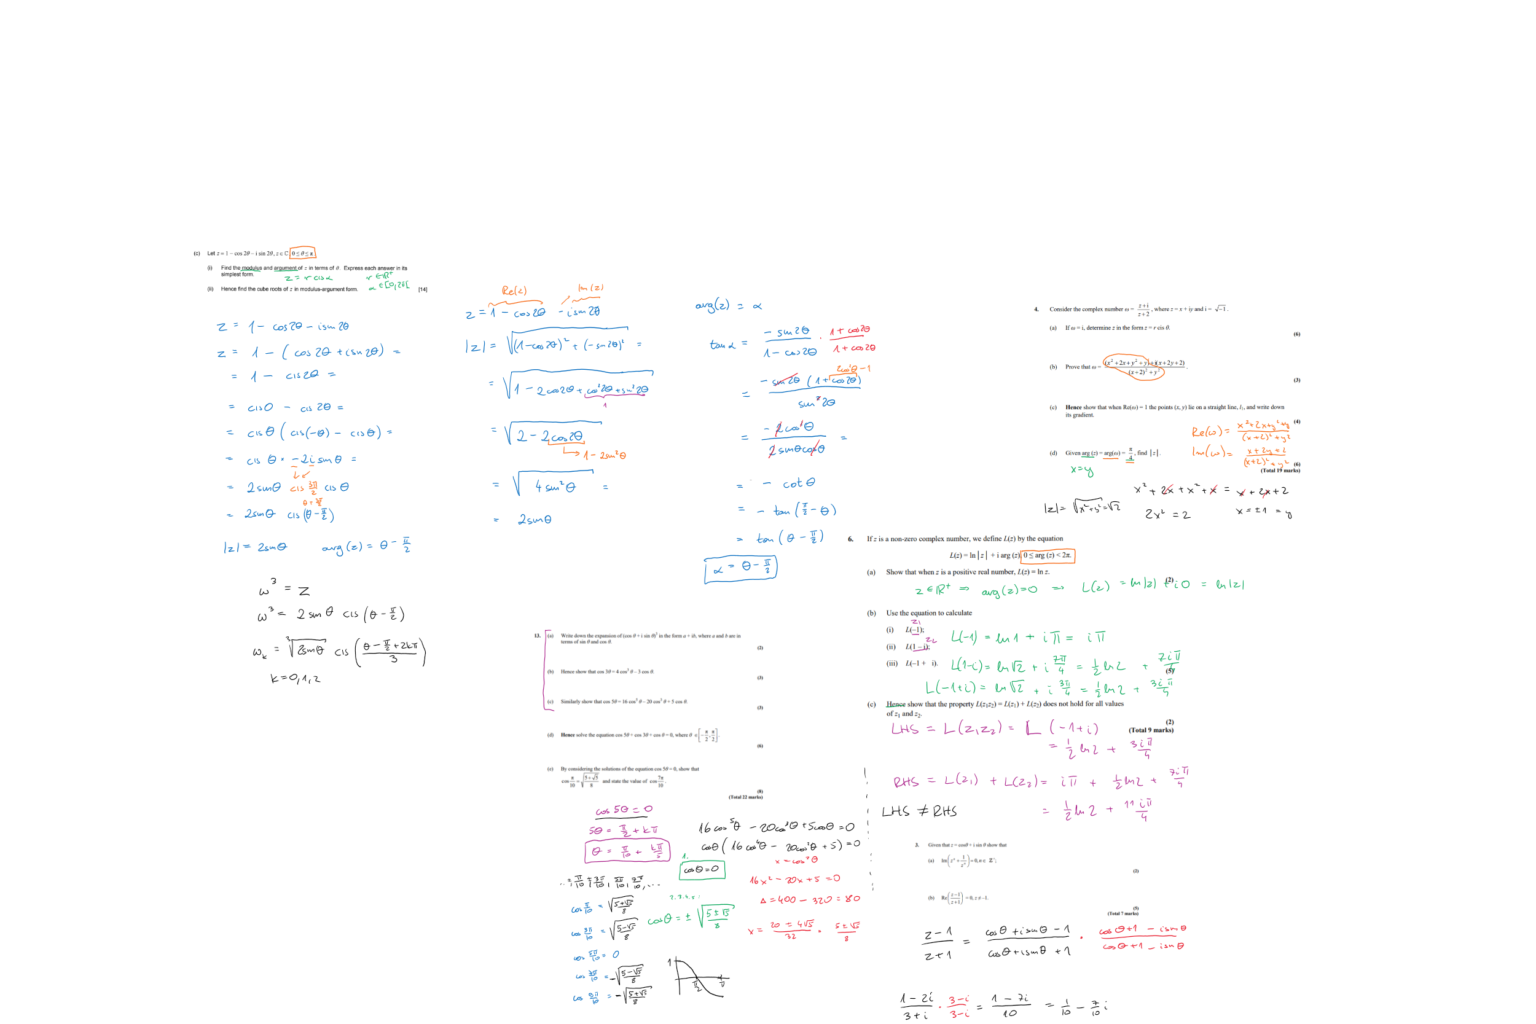 (c) Let z = 1 − cos 2θ − i sin 2θ, z ∈ ℂ, 0 ≤ θ ≤ π.
(i) Find the modulus and argument of z in terms of θ. Express each answer in its
simplest form.
z = r cis α r ∈ ℝ⁺
(ii) Hence find the cube roots of z in modulus-argument form.
α ∈ [0, 2π[
[14]
z = 1 − cos2θ − i sin 2θ
z = 1 − (cos2θ + i sin2θ) =
= 1 − cis 2θ =
= cis 0 − cis 2θ =
= cis θ (cis(−θ) − cis θ) =
= cis θ · −2i sin θ =
= 2 sin θ cis 3π/2 cis θ
θ + 3π/2
= 2 sin θ cis (θ − π/2)
|z| = 2 sin θ arg(z) = θ − π/2
ω³ = z
ω³ = 2 sin θ cis (θ − π/2)
ω_k = ³√(2sinθ) cis ((θ − π/2 + 2kπ)/3)
k = 0, 1, 2
Re(z) Im(z)
z = 1 − cos2θ − i sin 2θ
|z| = √((1 − cos2θ)² + (−sin 2θ)²) =
= √(1 − 2cos2θ + cos²2θ + sin²2θ)
1
= √(2 − 2cos2θ)
1 − 2sin²θ
= √(4 sin²θ) =
= 2 sin θ
arg(z) = α
tan α = (−sin2θ)/(1 − cos2θ) · (1 + cos2θ)/(1 + cos2θ)
2cos²θ − 1
= (−sin2θ (1 + cos2θ))/(sin²2θ)
= (−2cos²θ)/(2 sinθ cosθ) =
= − cot θ
= − tan (π/2 − θ)
= tan (θ − π/2)
α = θ − π/2
4. Consider the complex number ω = (z + i)/(z + 2), where z = x + iy and i = √−1.
(a) If ω = i, determine z in the form z = r cis θ.
(6)
(b) Prove that ω = ((x² + 2x + y² + y) + i(x + 2y + 2))/((x + 2)² + y²).
(3)
(c) Hence show that when Re(ω) = 1 the points (x, y) lie on a straight line, l₁, and write down
its gradient.
(4)
Re(ω) = (x² + 2x + y² + y)/((x+2)² + y²)
(d) Given arg (z) = arg(ω) = π/4, find |z|.
Im(ω) = (x + 2y + 2)/((x+2)² + y²)
(6)
(Total 19 marks)
x = y
x² + 2x + x² + x = x + 2x + 2
|z| = √(x² + y²) = √2 2x² = 2 x = ±1 = y
6. If z is a non-zero complex number, we define L(z) by the equation
L(z) = ln |z| + i arg (z), 0 ≤ arg (z) < 2π.
(a) Show that when z is a positive real number, L(z) = ln z.
(2)
z ∈ ℝ⁺ ⇒ arg(z) = 0 ⇒ L(z) = ln|z| + i0 = ln|z|
(b) Use the equation to calculate
z₁
(i) L(−1);
L(−1) = ln 1 + iπ = iπ
z₂
(ii) L(1 − i);
L(1−i) = ln√2 + i 7π/4 = 1/2 ln 2 + 7iπ/4
(iii) L(−1 + i).
(5)
L(−1+i) = ln√2 + i 3π/4 = 1/2 ln 2 + 3iπ/4
(c) Hence show that the property L(z₁z₂) = L(z₁) + L(z₂) does not hold for all values
of z₁ and z₂.
(2)
(Total 9 marks)
LHS = L(z₁z₂) = L(−1+i)
= 1/2 ln 2 + 3iπ/4
RHS = L(z₁) + L(z₂) = iπ + 1/2 ln 2 + 7iπ/4
LHS ≠ RHS = 1/2 ln 2 + 11iπ/4
13. (a) Write down the expansion of (cos θ + i sin θ)³ in the form a + ib, where a and b are in
terms of sin θ and cos θ.
(2)
(b) Hence show that cos 3θ = 4 cos³ θ − 3 cos θ.
(3)
(c) Similarly show that cos 5θ = 16 cos⁵ θ − 20 cos³ θ + 5 cos θ.
(3)
(d) Hence solve the equation cos 5θ + cos 3θ + cos θ = 0, where θ ∈ [−π/2, π/2].
(6)
(e) By considering the solutions of the equation cos 5θ = 0, show that
cos π/10 = √((5 + √5)/8) and state the value of cos 7π/10.
(8)
(Total 22 marks)
cos 5θ = 0
5θ = π/2 + kπ
θ = π/10 + kπ/5
16cos⁵θ − 20cos³θ + 5cosθ = 0
cosθ (16cos⁴θ − 20cos²θ + 5) = 0
1. cosθ = 0
x = cos²θ
16x² − 20x + 5 = 0
Δ = 400 − 320 = 80
x = (20 ± 4√5)/32 = (5 ± √5)/8
cosθ = ± √((5 ± √5)/8)
cos π/10 = √((5+√5)/8)
cos 3π/10 = √((5−√5)/8)
cos 5π/10 = 0
cos 7π/10 = −√((5−√5)/8)
cos 9π/10 = −√((5+√5)/8)
1 π/2 π
3. Given that z = cosθ + i sin θ show that
(a) Im(zⁿ + 1/zⁿ) = 0, n ∈ ℤ⁺;
(2)
(b) Re((z − 1)/(z + 1)) = 0, z ≠ −1.
(5)
(Total 7 marks)
(z − 1)/(z + 1) = (cosθ + i sinθ − 1)/(cosθ + i sinθ + 1) · (cosθ + 1 − i sinθ)/(cosθ + 1 − i sinθ)
(1 − 2i)/(3 + i) · (3 − i)/(3 − i) = (1 − 7i)/10 = 1/10 − 7/10 i